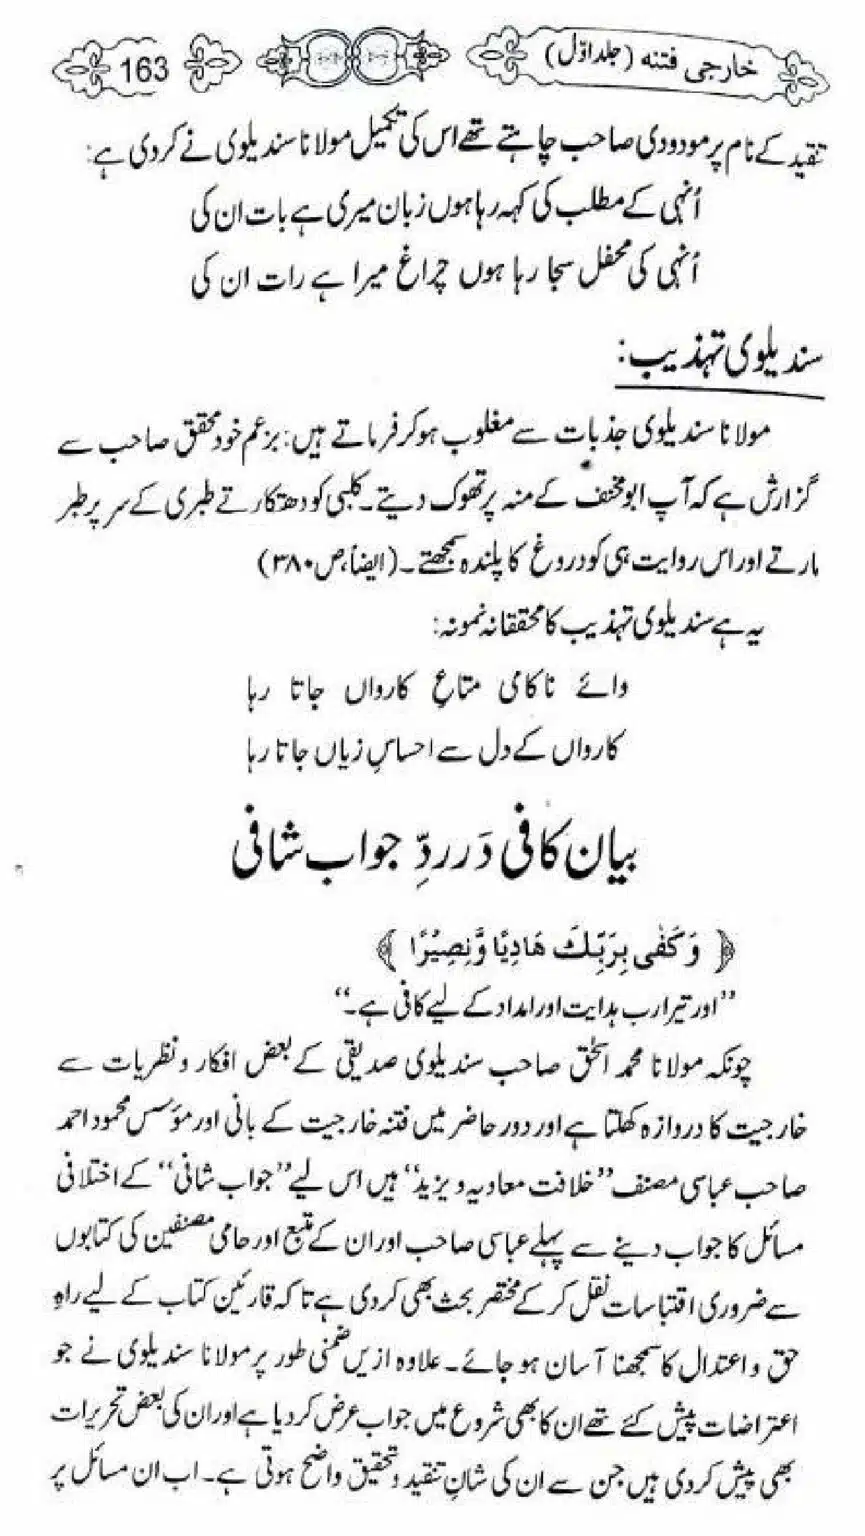 خارجی فتنہ (جلد اوّل)
163
تنقید کے نام پر مودودی صاحب چاہتے تھے اس کی تکمیل مولانا سندیلوی نے کردی ہے:
اُنہی کے مطلب کی کہہ رہا ہوں زبان میری ہے بات ان کی
اُنہی کی محفل سجا رہا ہوں چراغ میرا ہے رات ان کی
سندیلوی تہذیب:
مولانا سندیلوی جذبات سے مغلوب ہوکر فرماتے ہیں: بزعم خود محقق صاحب سے
گزارش ہے کہ آپ ابومخنف کے منہ پر تھوک دیتے۔ کلبی کو دھتکارتے طبری کے سر پر طبر
مارتے اور اس روایت ہی کو دروغ کا پلندہ سمجھتے۔ (ایضاً، ص ۳۸۰)
یہ ہے سندیلوی تہذیب کا محققانہ نمونہ:
وائے ناکامی متاعِ کارواں جاتا رہا
کارواں کے دل سے احساسِ زیاں جاتا رہا
بیان کافی دَر ردِّ جواب شافی
﴿ وَكَفٰى بِرَبِّكَ هَادِيًا وَّنَصِيْرًا ﴾
”اور تیرا رب ہدایت اور امداد کے لیے کافی ہے۔“
چونکہ مولانا محمد الحق صاحب سندیلوی صدیقی کے بعض افکار و نظریات سے
خارجیت کا دروازہ کھلتا ہے اور دور حاضر میں فتنہ خارجیت کے بانی اور مؤسس محمود احمد
صاحب عباسی مصنف ”خلافت معاویہ و یزید“ ہیں اس لیے ”جواب شافی“ کے اختلافی
مسائل کا جواب دینے سے پہلے عباسی صاحب اور ان کے متبع اور حامی مصنفین کی کتابوں
سے ضروری اقتباسات نقل کرکے مختصر بحث بھی کردی ہے تاکہ قارئین کتاب کے لیے راہِ
حق و اعتدال کا سمجھنا آسان ہو جائے۔ علاوہ ازیں ضمنی طور پر مولانا سندیلوی نے جو
اعتراضات پیش کئے تھے ان کا بھی شروع میں جواب عرض کردیا ہے اور ان کی بعض تحریرات
بھی پیش کردی ہیں جن سے ان کی شانِ تنقید و تحقیق واضح ہوتی ہے۔ اب ان مسائل پر